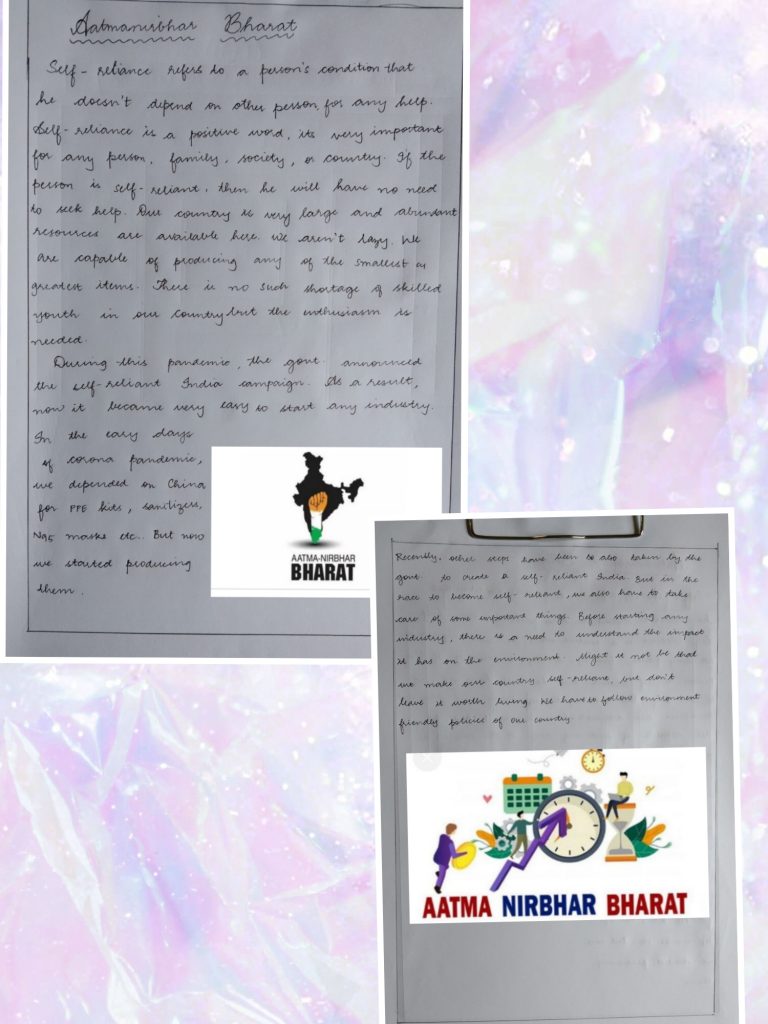 Aatmanirbhar Bharat
Self-reliance refers to a person's condition that
he doesn't depend on other person, for any help.
Self-reliance is a positive word, its very important
for any person, family, society, or country. If the
person is self-reliant, then he will have no need
to seek help. Our country is very large and abundant
resources are available here. We aren't lazy. We
are capable of producing any of the smallest or
greatest items. There is no such shortage of skilled
youth in our country but the enthusiasm is
needed.
During this pandemic, the govt. announced
the self-reliant India campaign. As a result,
now it became very easy to start any industry.
In the eary days
of corona pandemic,
we depended on China
for PPE kits, sanitizers,
N95 masks etc.. But now
we started producing
them.
AATMA-NIRBHAR
BHARAT
Recently, other steps have been to also taken by the
govt. to create a self-reliant India. But in the
race to become self-reliant, we also have to take
care of some important things. Before starting any
industry, there is a need to understand the impact
it has on the environment. Might it not be that
we make our country self-reliant, but don't
leave it worth living. We have to follow environment
friendly policies of our country.
AATMA NIRBHAR BHARAT